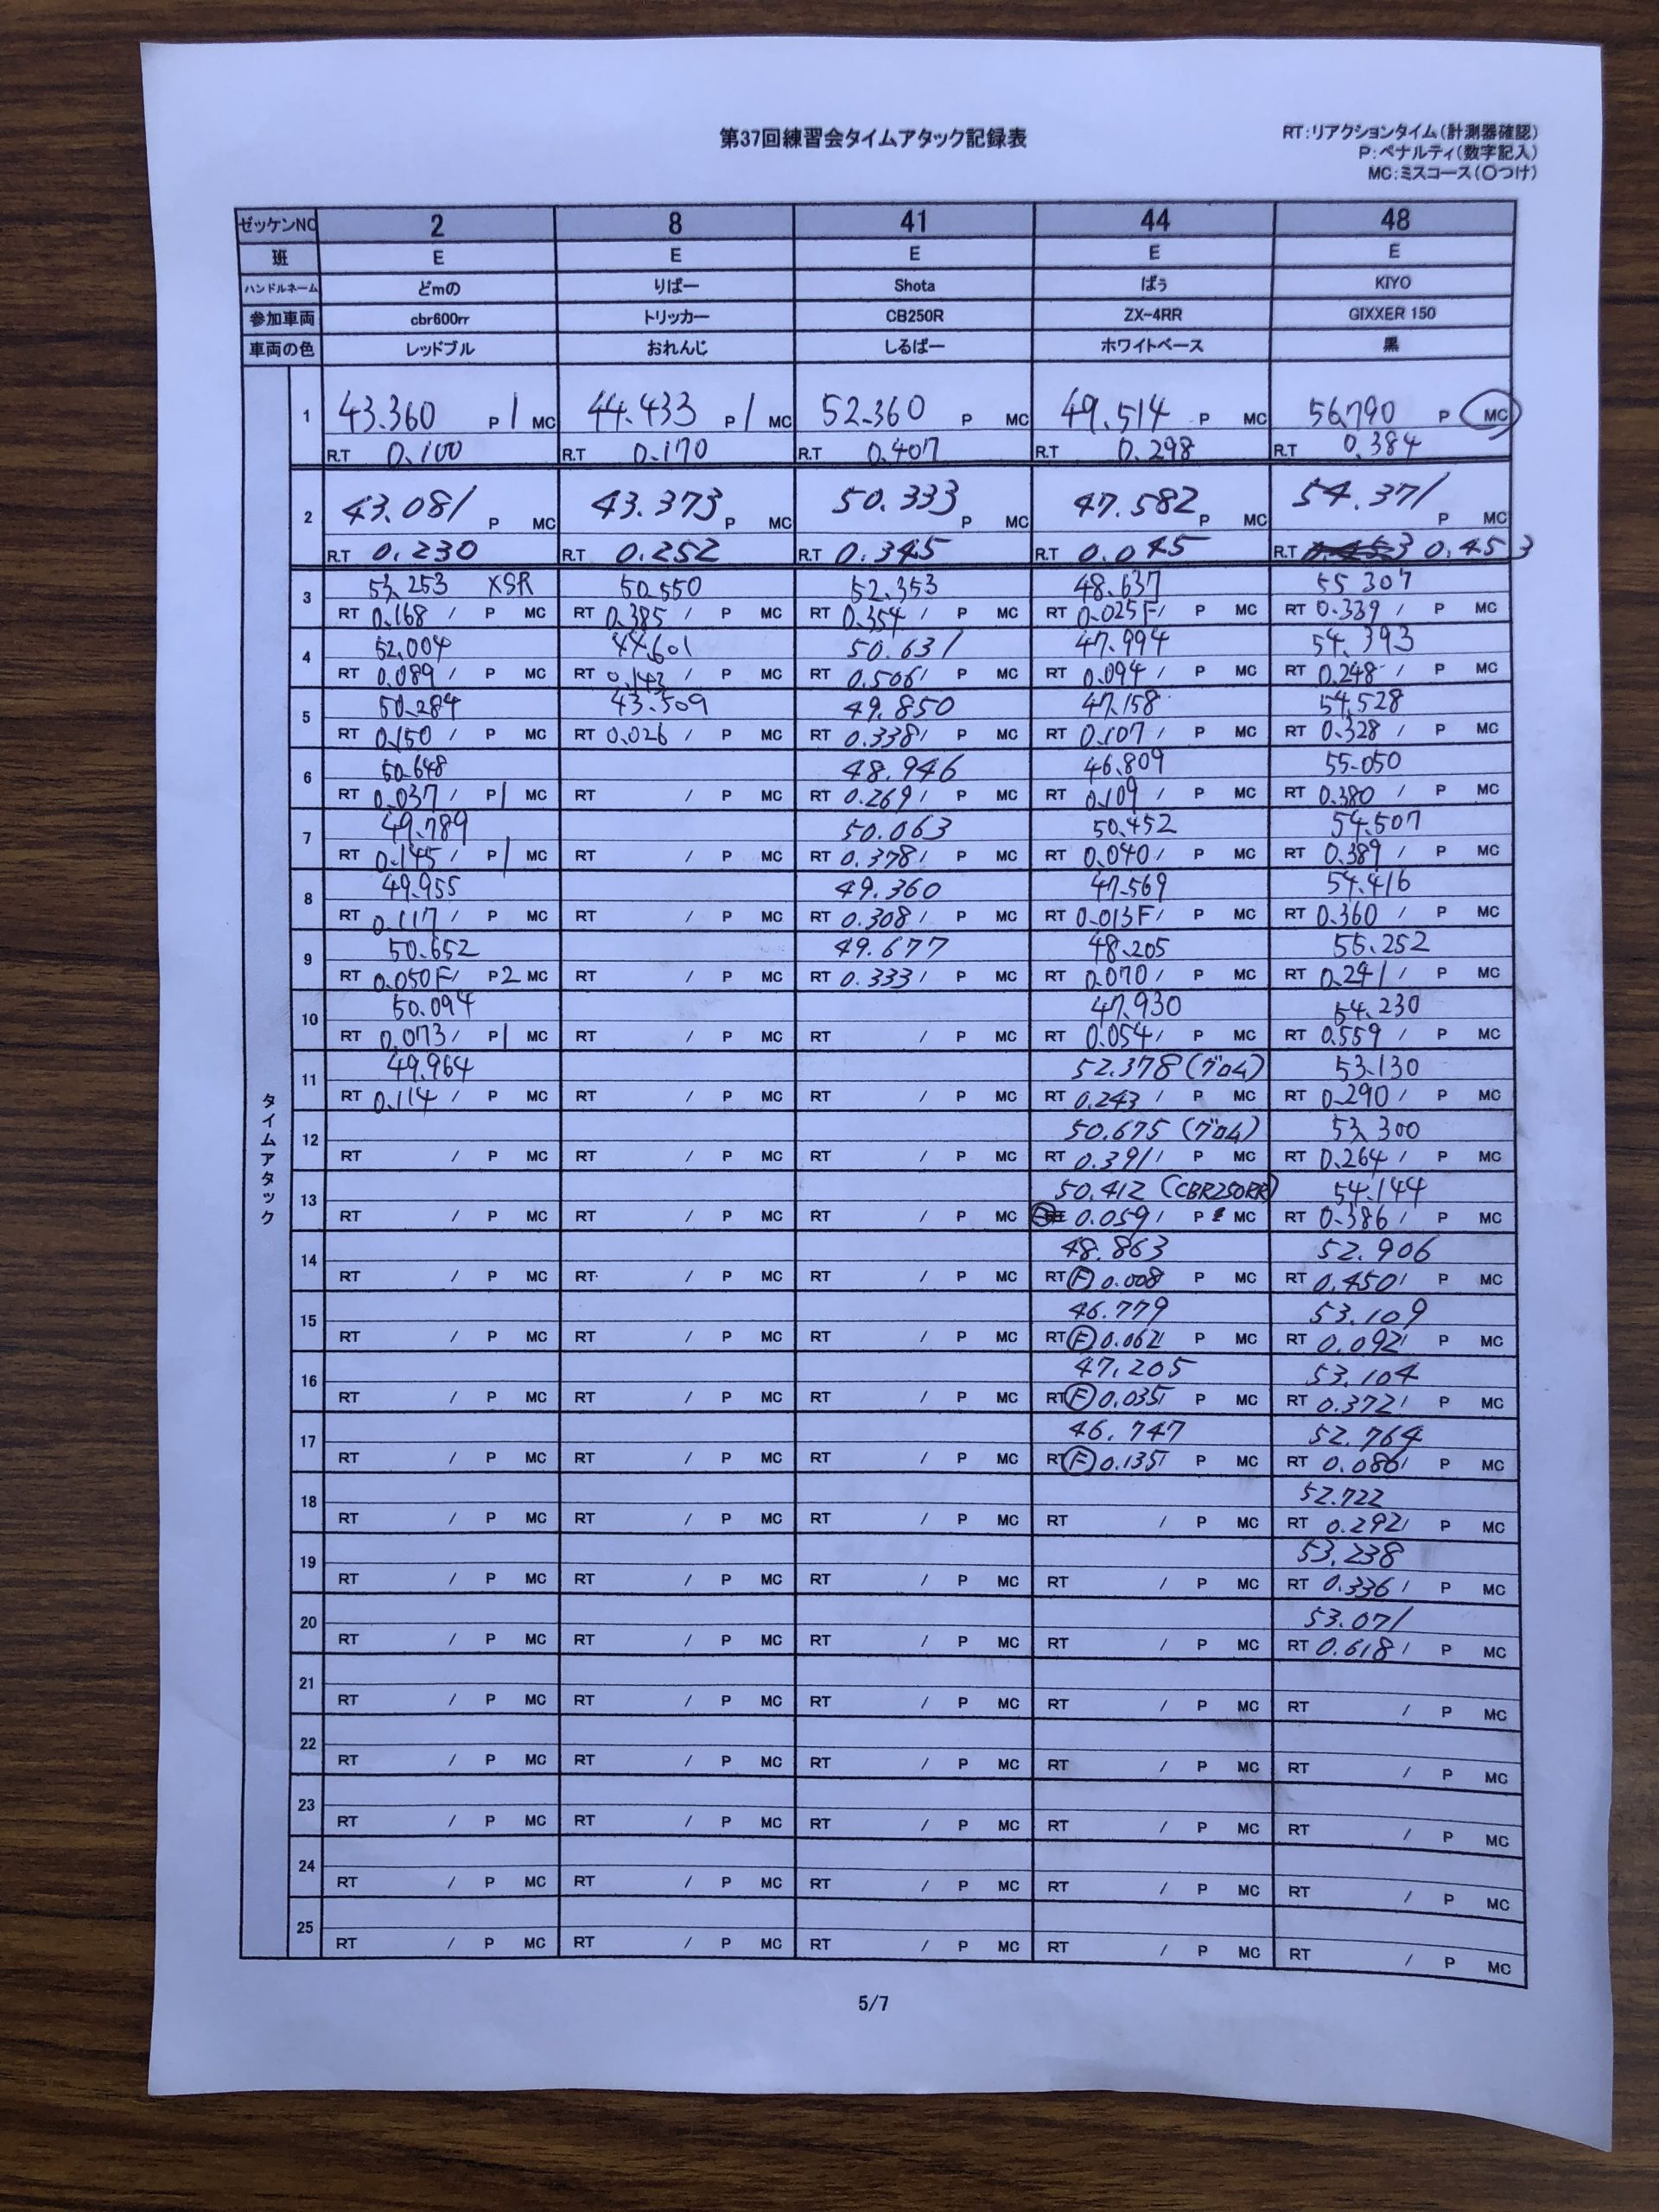 第37回練習会タイムアタック記録表
RT:リアクションタイム(計測器確認)
P:ペナルティ(数字記入)
MC:ミスコース(〇つけ)
ゼッケンNO 2 8 41 44 48
班 E E E E E
ハンドルネーム どmの りばー Shota ばぅ KIYO
参加車両 cbr600rr トリッカー CB250R ZX-4RR GIXXER 150
車両の色 レッドブル おれんじ しるばー ホワイトベース 黒
タイムアタック
1 43.360 P 1 MC 44.433 P 1 MC 52.360 P MC 49.514 P MC 56.790 P MC
R.T 0.100 R.T 0.170 R.T 0.407 R.T 0.298 R.T 0.384
2 43.081 P MC 43.373 P MC 50.333 P MC 47.582 P MC 54.371 P MC
R.T 0.230 R.T 0.252 R.T 0.345 R.T 0.045 R.T 0.453
3 53.253 XSR 50.550 52.353 48.637 55.307
RT 0.168 / P MC RT 0.385 / P MC RT 0.354 / P MC RT 0.025F / P MC RT 0.339 / P MC
4 52.004 44.601 50.631 47.994 54.393
RT 0.089 / P MC RT 0.143 / P MC RT 0.506 / P MC RT 0.094 / P MC RT 0.248 / P MC
5 50.284 43.509 49.850 47.158 54.528
RT 0.150 / P MC RT 0.026 / P MC RT 0.338 / P MC RT 0.107 / P MC RT 0.328 / P MC
6 50.648 48.946 46.809 55.050
RT 0.037 / P 1 MC RT / P MC RT 0.269 / P MC RT 0.109 / P MC RT 0.380 / P MC
7 49.789 50.063 50.452 54.507
RT 0.145 / P 1 MC RT / P MC RT 0.378 / P MC RT 0.040 / P MC RT 0.389 / P MC
8 49.955 49.360 47.569 54.416
RT 0.117 / P MC RT / P MC RT 0.308 / P MC RT 0.013F / P MC RT 0.360 / P MC
9 50.652 49.677 48.205 55.252
RT 0.050F / P2 MC RT / P MC RT 0.333 / P MC RT 0.070 / P MC RT 0.241 / P MC
10 50.094 47.930 54.230
RT 0.073 / P 1 MC RT / P MC RT / P MC RT 0.054 / P MC RT 0.559 / P MC
11 49.964 52.378 (グロム) 53.130
RT 0.114 / P MC RT / P MC RT / P MC RT 0.243 / P MC RT 0.290 / P MC
12 50.675 (グロム) 53.300
RT / P MC RT / P MC RT / P MC RT 0.391 / P MC RT 0.264 / P MC
13 50.412 (CBR250RR) 54.144
RT / P MC RT / P MC RT / P MC 0.059 / P MC RT 0.386 / P MC
14 48.863 52.906
RT / P MC RT / P MC RT / P MC RT F 0.008 P MC RT 0.450 / P MC
15 46.779 53.109
RT / P MC RT / P MC RT / P MC RT F 0.062 / P MC RT 0.092 / P MC
16 47.205 53.104
RT / P MC RT / P MC RT / P MC RT F 0.035 / P MC RT 0.372 / P MC
17 46.747 52.764
RT / P MC RT / P MC RT / P MC RT F 0.135 / P MC RT 0.086 / P MC
18 52.722
RT / P MC RT / P MC RT / P MC RT / P MC RT 0.292 / P MC
19 53.238
RT / P MC RT / P MC RT / P MC RT / P MC RT 0.336 / P MC
20 53.071
RT / P MC RT / P MC RT / P MC RT / P MC RT 0.618 / P MC
21
RT / P MC RT / P MC RT / P MC RT / P MC RT / P MC
22
RT / P MC RT / P MC RT / P MC RT / P MC RT / P MC
23
RT / P MC RT / P MC RT / P MC RT / P MC RT / P MC
24
RT / P MC RT / P MC RT / P MC RT / P MC RT / P MC
25
RT / P MC RT / P MC RT / P MC RT / P MC RT / P MC
5/7